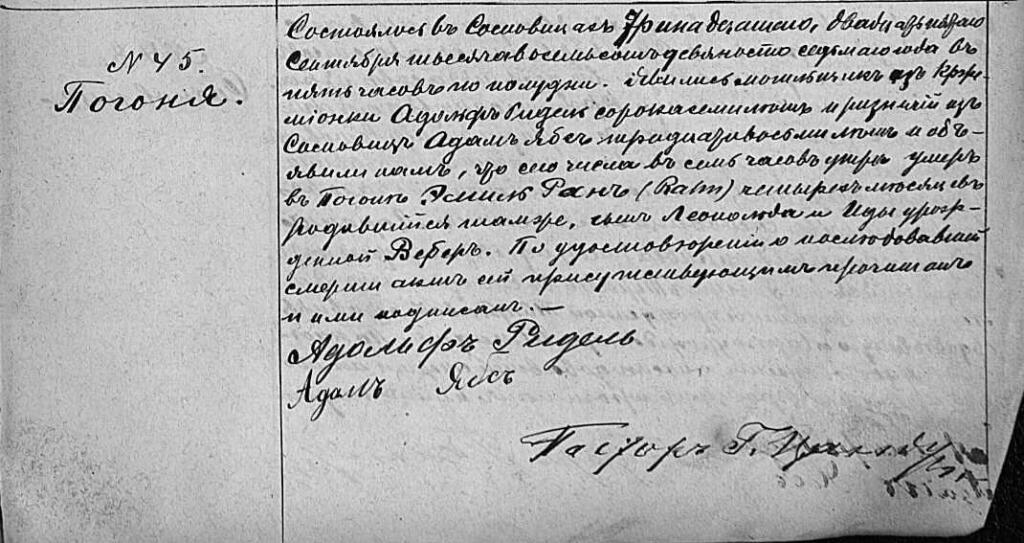 № 45.
Погоня.
Состоялось въ Сосновицахъ Тринадцатаго, двадцать пятаго
Сентября тысяча восемьсотъ девяносто седьмаго года въ
пять часовъ по полудни. Явились могильщикъ изъ Крже-
міонки Адольфъ Ридель сорока семи лѣтъ и рѣзчій изъ
Сосновицъ Адамъ Ябсъ тридцати восьми лѣтъ и объ-
явили намъ, что сего числа въ семь часовъ утра умеръ
въ Погони Эмиль Ранъ (Rahn) четырехъ мѣсяцевъ
родившійся тамже, сынъ Леопольда и Иды урож-
денной Веберъ. По удостовѣреніи о послѣдовавшей
смерти актъ сей присутствующимъ прочитанъ
и ими подписанъ.—
Адольфъ Ридель
Адамъ Ябсъ
Пасторъ Г.